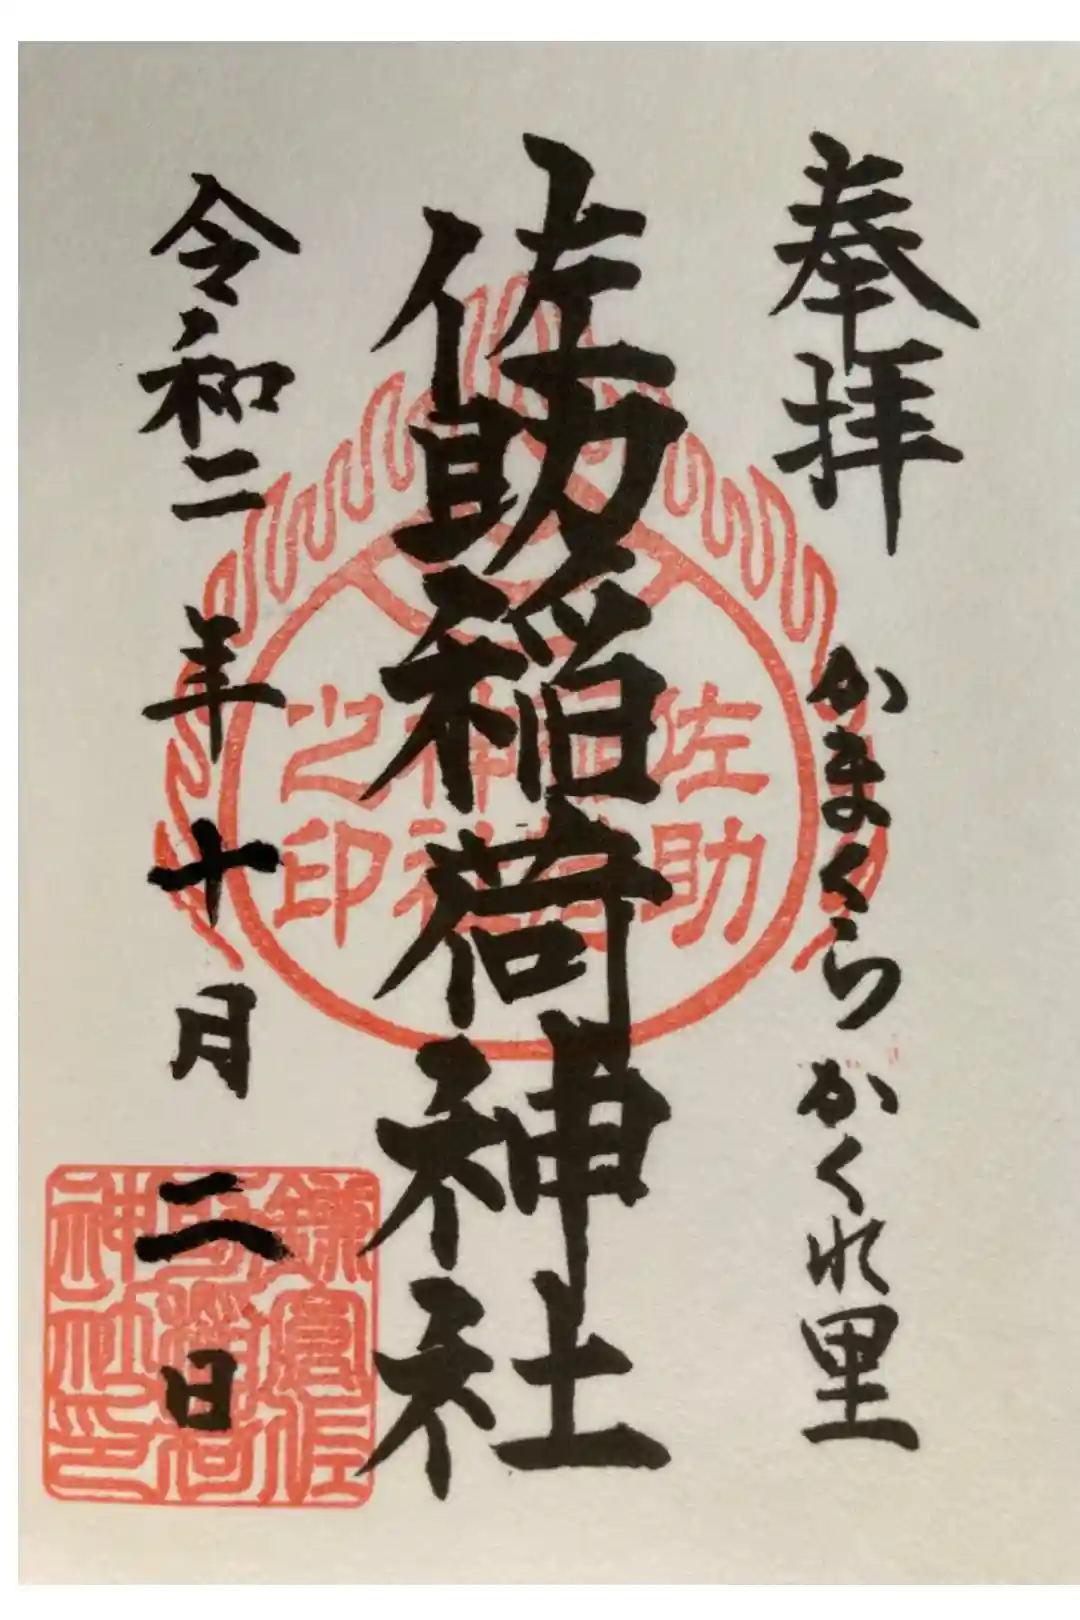 奉拝
かまくらかくれ里
佐助稲荷神社
令和二年十月二日
佐助
之印
鎌倉佐
神社印